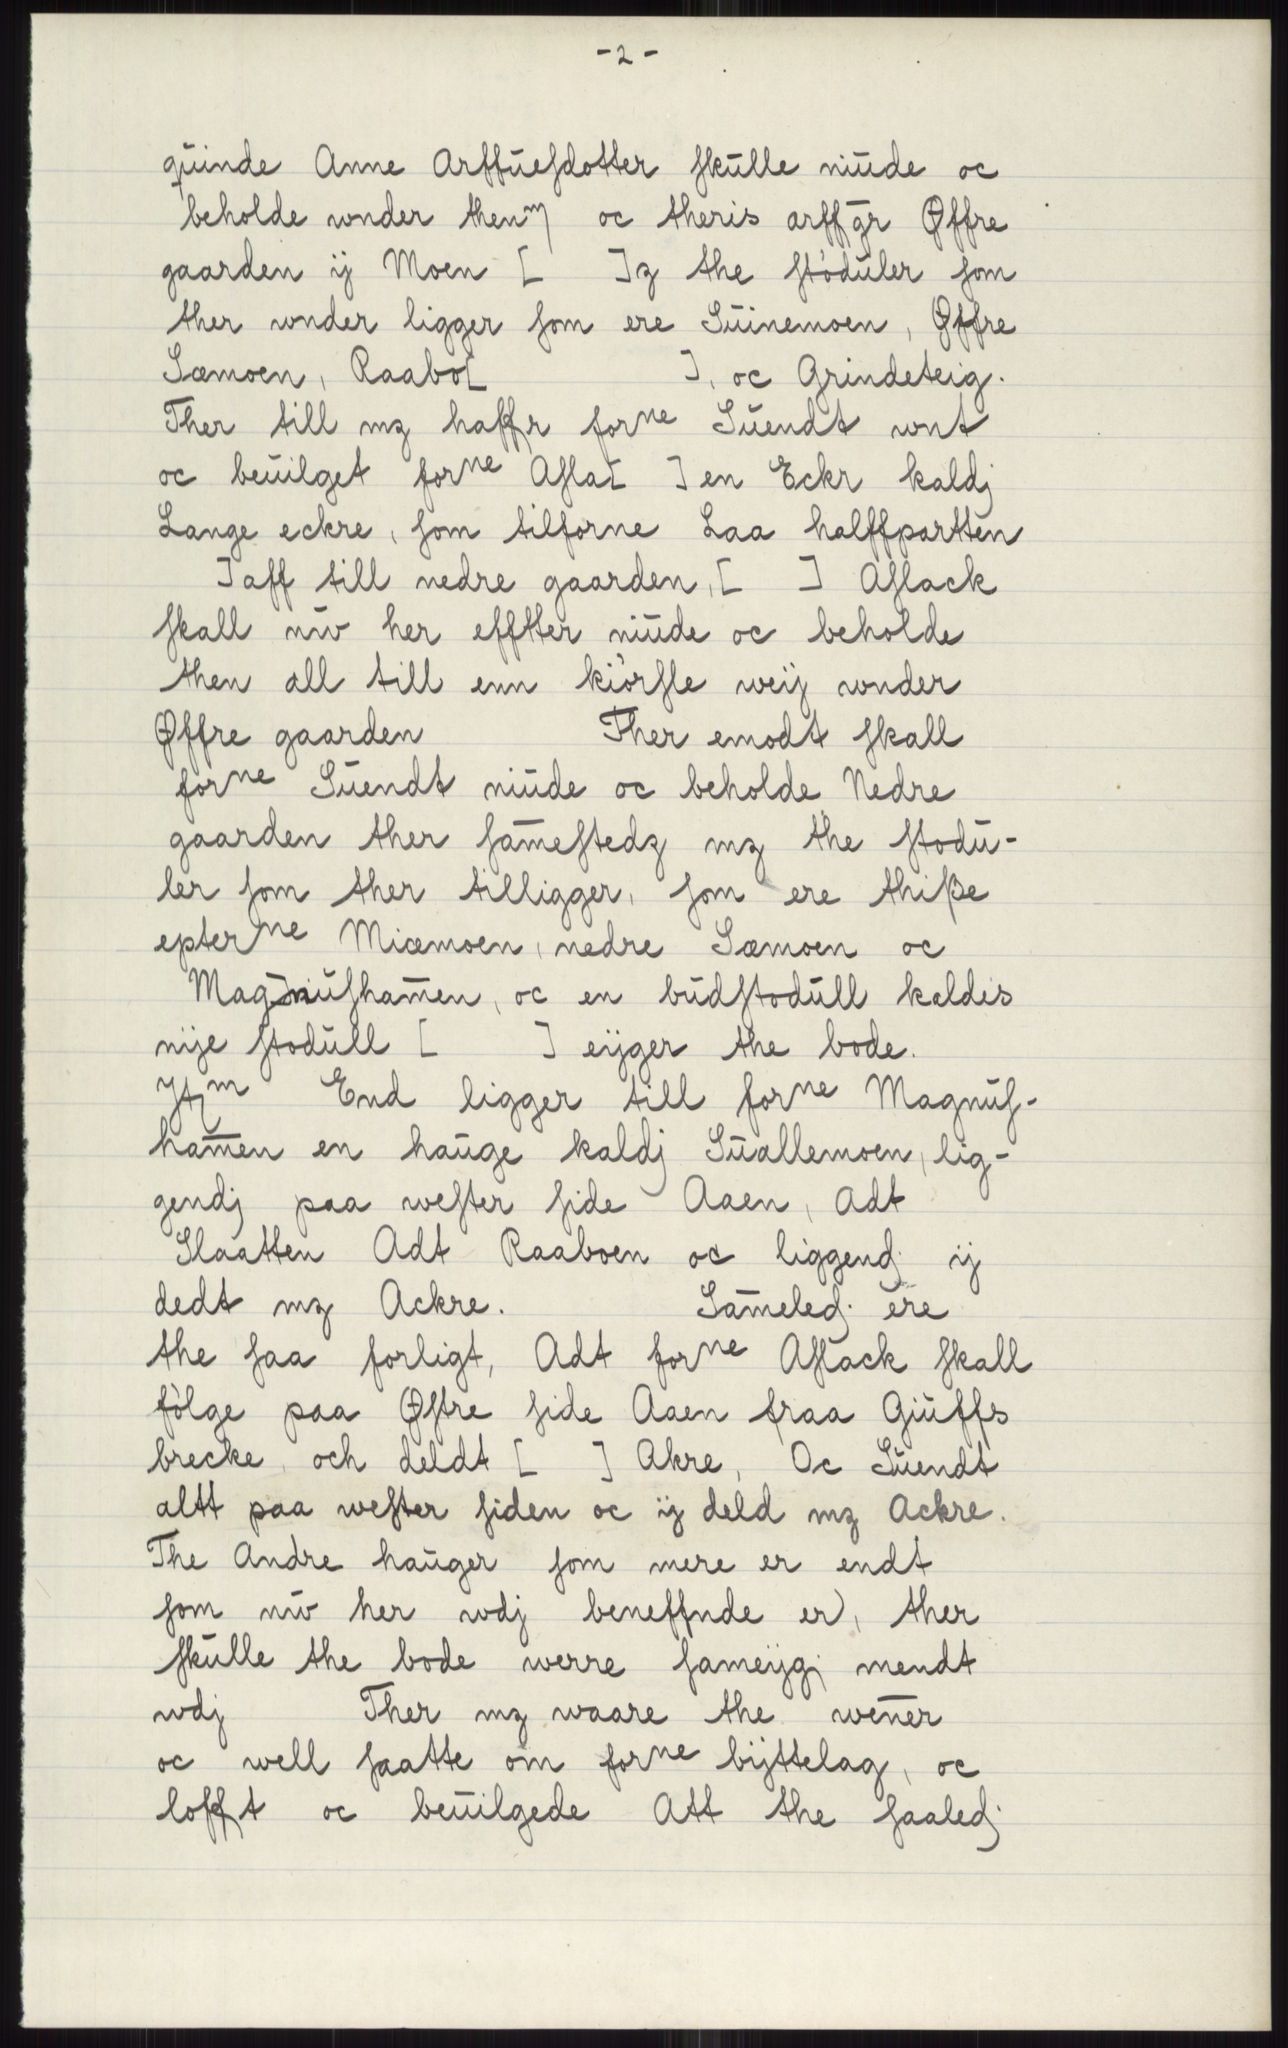 - 2 -
quinde Anne Arffuesdotter skulle niude oc
beholde wnder thenm oc theris arffgr Øffre
gaarden ij Moen [ ]z the stöduler som
ther wnder ligger som ere Suinemoen, Øffre
Sæmoen, Raabo[ ], oc Grindeteig.
Ther till mz haffr forne Suendt wnt
oc beuilget forne Asla[ ] en Eckr kaldj
Lange eckre, som tilforne Laa halffpartten
] aff till nedre gaarden, [ ] Aslack
skall nw her efftter niude oc beholde
then all till enn kiörsle weij wnder
Øffre gaarden Ther emodt skall
forne Suendt niude oc beholde Nedre
gaarden ther sam̄estedz mz the stodu-
ler som ther tilligger, som ere thiße
epterne Miæmoen, nedre Sæmoen oc
Magnusham̄en, oc en budstodull kaldis
nije stodull [ ] eijger the bode.
Jtm End ligger till forne Magnus-
ham̄en en hauge kaldj Suallemoen, lig-
gendj paa wester side Aaen, Adt
Slaatten Adt Raaboen oc liggendj ij
dedt mz Ackre. Sam̄eledj ere
the saa forligt, Adt forne Aslack skall
fölge paa Østre side Aaen fraa Giuffs
brecke, och deldt [ ] Akre, Oc Suendt
altt paa wester siden oc ij deld mz Ackre.
The Andre hauger som mere er endt
som nw her wdj beneffnde er, ther
skulle the bode werre sameijgj mendt
wdj Ther mz waare the wen̄er
oc well saatte om̄ forne bijttelag, oc
lofft oc beuilgede Att the saaledj